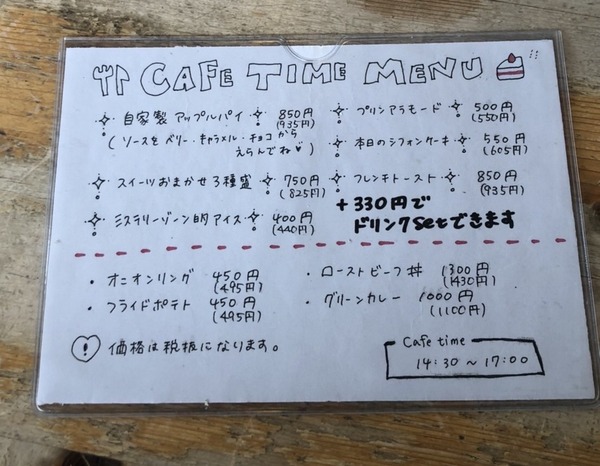 CAFE TIME MENU
自家製 アップルパイ 850円
(935円)
(ソースをベリー・キャラメル・チョコから
えらんでね♥)
スイーツおまかせ3種盛 750円
(825円)
ミステリーゾーン的アイス 400円
(440円)
プリンアラモード 500円
(550円)
本日のシフォンケーキ 550円
(605円)
フレンチトースト 850円
(935円)
+330円で
ドリンクsetできます
・オニオンリング 450円
(495円)
・フライドポテト 450円
(495円)
・ローストビーフ丼 1300円
(1430円)
・グリーンカレー 1000円
(1100円)
! 価格は税抜になります。
Cafe time
14:30～17:00